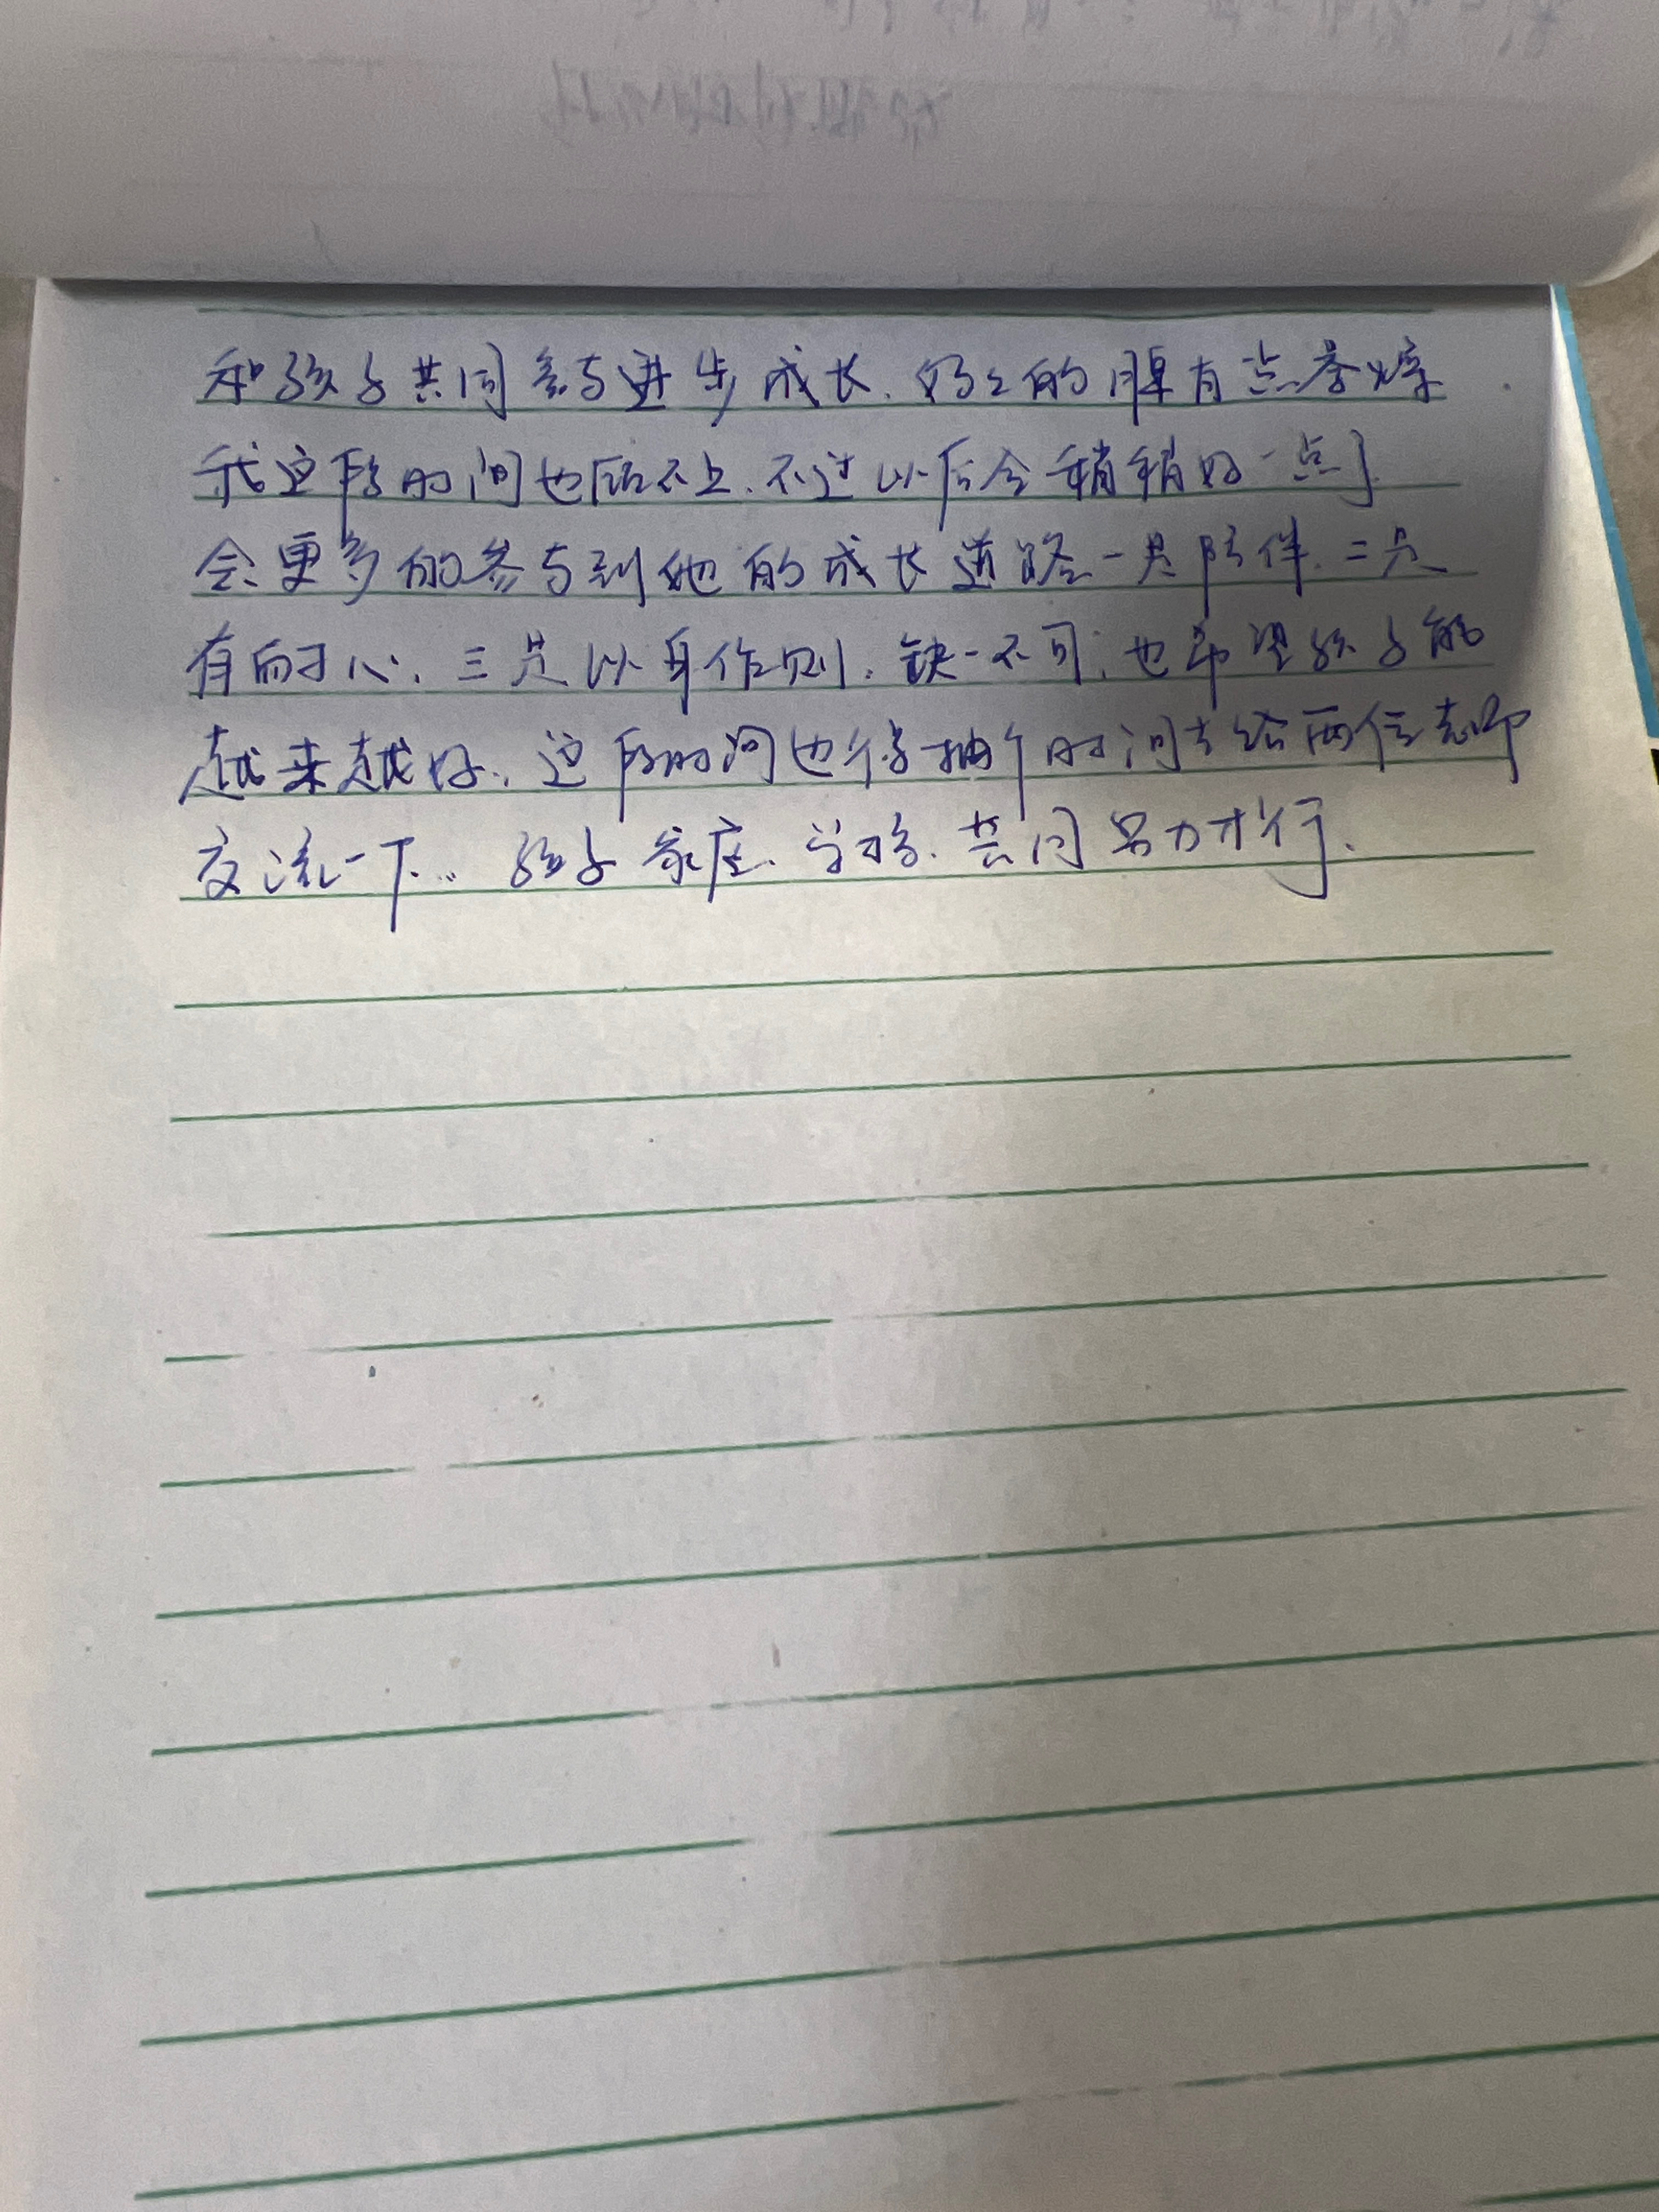 和孩子共同参与进步成长.奶奶的脾有点暴燥
我这段时间也顾不上.不过以后会稍稍好一点了
会更多的参与到她的成长道路一是陪伴.二是
有耐心.三是以身作则.缺一不可.也希望孩子能
越来越好..这段时间也得抽个时间去给两位老师
交流一下... 孩子家庭.学校.共同努力才行.